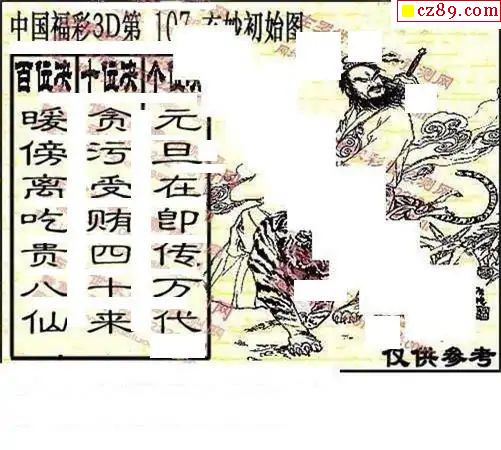 cz89.com
中国福彩3D第 初始图
百位决 十位决 个
暖傍离吃贵八仙
贪污受贿四十来
元旦在即传万代
仅供参考